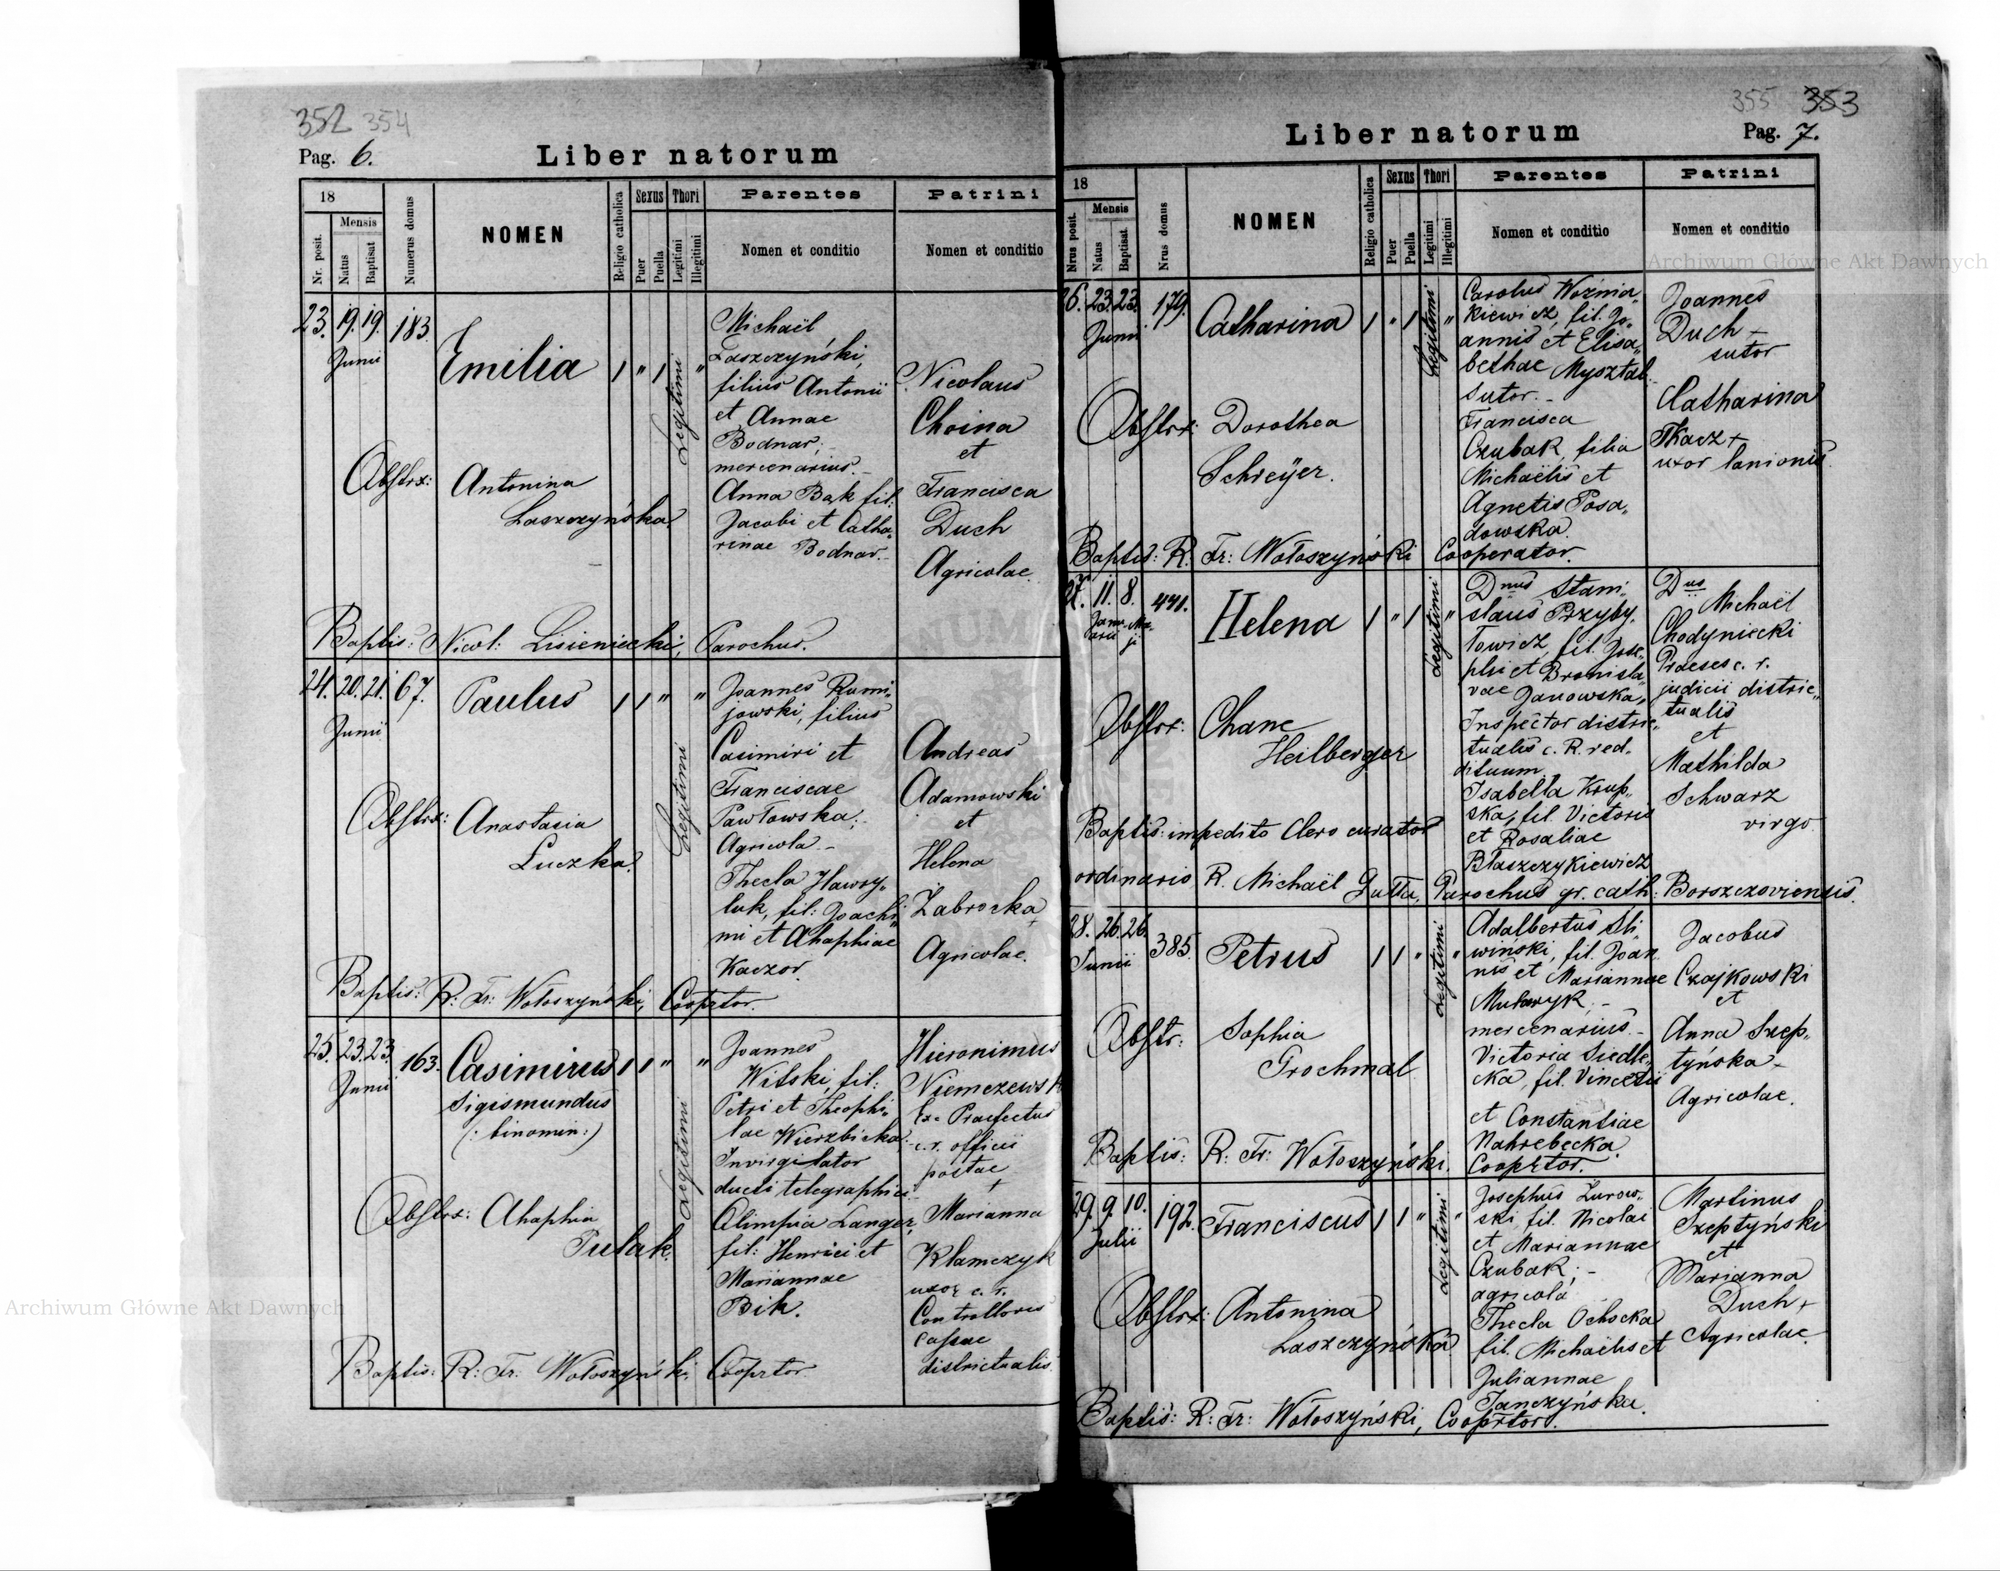 352 354
Pag. 6.
Liber natorum
18
Mensis
Nr. posit.
Natus
Baptisat
Numerus domus
NOMEN
Religio catholica
Sexus
Puer
Puella
Thori
Legitimi
Illegitimi
Parentes
Nomen et conditio
Patrini
Nomen et conditio
23. 19. 19. 183.
Junii
Emilia 1 " 1 Legitimi "
Obstrx: Antonina
Laszczyńska
Michaël
Laszczyński,
filius Antonii
et Annae
Bodnar,
mercenarius.-
Anna Bąk fil:
Jacobi et Catha-
rinae Bodnar.-
Nicolaus
Choina
et
Francisca
Duch
Agricolae.
Baptis: Nicol: Lisieniecki, Parochus.
24. 20. 21. 67.
Junii
Paulus 1 1 " Legitimi "
Obstrx: Anastasia
Luczka.
Joannes Rumi-
jowski, filius
Casimiri et
Franciscae
Pawłowska,
Agricola -
Thecla Hawry-
luk, fil: Joachi-
mi et Ahaphiae
Kaczor.
Andreas
Adamowski
et
Helena
Zabrocka +
Agricolae.
Baptis: R: Fr: Wołoszyński, Cooprtor.
25. 23. 23. 163.
Junii
Casimirus 1 1 " Legitimi "
Sigismundus
(: binomin:)
Obstrx: Ahaphia
Pulak.
Joannes
Witski, fil:
Petri et Theophi-
lae Wierzbicka,
Invirgilator
ducti telegraphici
Olimpia Langer,
fil: Henrici et
Mariannae
Bik.
Hieronimus
Niemczewsk
Exc Praefectus
c. r. officii
postae
+
Marianna
Klamczyk
uxor c. r.
Controlloris
cassae
districtualis.
Baptis: R: Fr: Wołoszyński, Cooprtor
355 353
Liber natorum
Pag. 7.
18
Mensis
Nrus posit.
Natus
Baptisat
Nrus domus
NOMEN
Religio catholica
Sexus
Puer
Puella
Thori
Legitimi
Illegitimi
Parentes
Nomen et conditio
Patrini
Nomen et conditio
Archiwum Główne Akt Dawnych
26. 23. 23. 179.
Junii
Catharina 1 " 1 Legitimi "
Obstrx: Dorothea
Schreÿer.
Carolus Woźnia-
kiewicz, fil. Jo-
annis et Elisa-
bethae Myształ
Sutor. -
Francisca
Czubak, filia
Michaëlis et
Agnetis Posa-
dowska.
Joannes
Duch -
sutor
Catharina
Tkacz +
uxor lanionis
Baptis: R. Fr: Wołoszyński Cooperator.
27. 11. 8. 441.
Janu-arii Ma-ji
Helena 1 " 1 Legitimi "
Obstrx: Chane
Heilberger
Dnus Stani-
slaus Przyby-
łowicz, fil. Jose-
phi et Bronisla-
vae Janowska,
Inspector distric-
tualis c. R. red-
dituum
Isabella Krup-
ska, fil. Victoris
et Rosaliae
Błaszczykiewicz
Dus Michaël
Chodyniecki
Praeses c. r.
judicii distric-
tualis
et
Mathilda
Schwarz
virgo.
Baptis: impedito Clero curator
ordinario R. Michaël Gutta, Parochus gr. cath: Borszczoviensis.
28. 26. 26. 385.
Junii
Petrus 1 1 " Legitimi "
Obstr: Sophia
Grochmal
Adalbertus Sli-
wiński, fil. Joan-
nis et Mariannae
mercenarius. -
Victoria Siedle-
cka, fil. Vincetii
et Constantiae
Nahrebecka.
Jacobus
Czajkowski
et
Anna Szep-
tyńska -
Agricolae.
Baptis: R: Fr: Wołoszyński. Cooprtor.
29. 9. 10. 192.
Julii
Franciscus 1 1 " Legitimi "
Obstrx: Antonina
Laszczyńska
Josephus Żurow-
ski, fil. Nicolai
et Mariannae
Czubak; -
agricola
Thecla Ochocka
fil. Michaëlis et
Juliannae
Janczyńska.
Martinus
Szeptyński
et
Marianna
Duch +
Agricolae
Baptis: R: Fr: Wołoszyński, Cooprtor.
Archiwum Główne Akt Dawnych